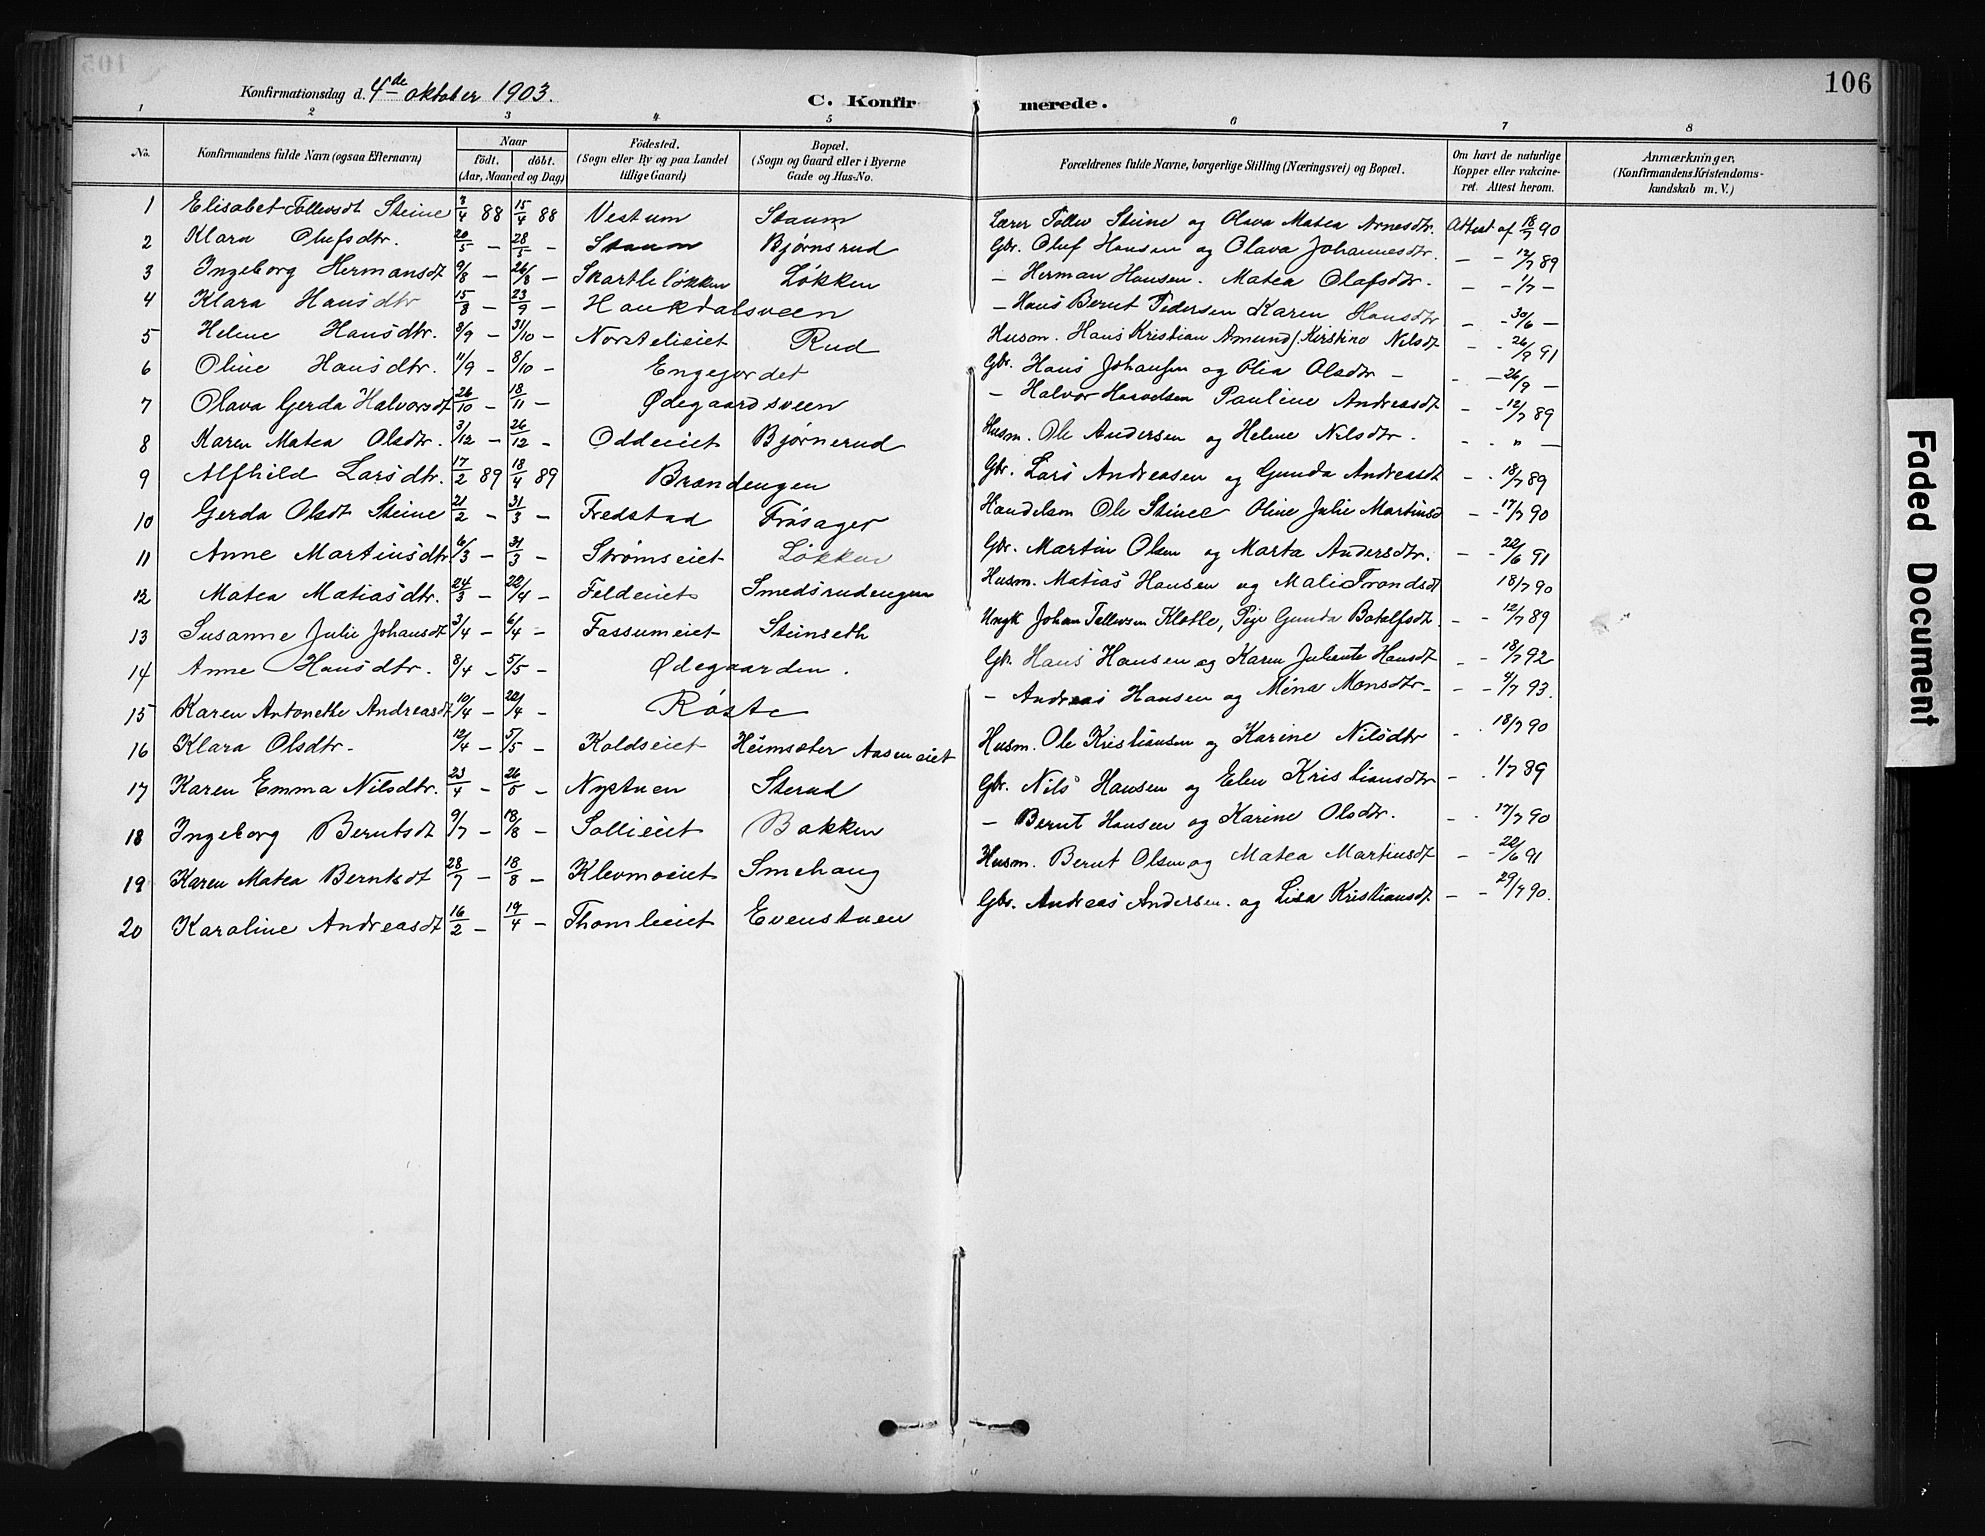 106
Konfirmationsdag d. 4de oktober 1903.
C. Konfirmerede.
1 2 3 4 5 6 7 8
No. Konfirmandens fulde Navn (ogsaa Efternavn) Naar født. døbt. (Aar, Maaned og Dag) Fødested. (Sogn eller By og paa Landet tillige Gaard) Bopæl. (Sogn og Gaard eller i Byerne Gade og Hus-No. Forældrenes fulde Navne, borgerlige Stilling (Næringsvei) og Bopæl. Om havt de naturlige Kopper eller vakcineret. Attest herom. Anmærkninger, (Konfirmandens Kristendomskundskab m. V.)
1 Elisabet Tollevsdt Steine 3/4 88 15/4 88 Vestum Staum Lærer Tollev Steine og Olava Matea Arnesdtr. Attest af 18/7 90
2 Klara Olufsdtr. 20/5 – 28/5 – Staum Bjørnsrud Gbr. Oluf Hansen og Olava Johannesdtr. – - 12/7 89
3 Ingeborg Hermansdt 9/8 – 26/8 – Skartleløkken Løkken – Herman Hansen. Matea Olafsdtr. – - 1/7 –
4 Klara Hansdtr 15/8 – 23/9 – Haukdalsveen – Hans Bernt Pedersen Karen Hansdtr – - 30/6 –
5 Helene Hansdtr. 3/9 – 31/10 – Norstelieiet Rud Husm. Hans Kristian Amund/ Kirstine Nilsdt - - 26/9 91
6 Oline Hansdtr. 11/9 – 8/10 – Engejordet Gbr. Hans Johansen og Olia Olsdtr – - - 26/9 –
7 Olava Gerda Halvorsdt 26/10 – 18/11 – Ødegaardsveen – Halvor Pauline Andreasdt - - 12/7 89
8 Karen Matea Olsdtr. 3/12 – 26/12 – Oddeiet Bjørnerud Husm. Ole Andersen og Helene Nilsdtr. - - " –
9 Alfhild Larsdtr. 17/2 89 18/4 89 Brændengen Gbr. Lars Andreasen og Gunda Andreasdt - - 18/7 89
10 Gerda Olsdt Steine 21/2 – 31/3 – Fredstad Frøsager Handelsm Ole Steine Oline Julie Martinsd – - 17/7 90
11 Anne Martinsdtr. 6/3 – 31/3 – Strømseiet Løkken Gbr. Martin Olsen og Marta Andersdtr. – - 22/6 91
12 Matea Matiasdtr. 24/3 – 22/4 – Feldeiet Smedsrudengen Husm. Matias Hansen og Mali Trondsdt 18/7 90
13 Susanne Julie Johansdt 3/4 – 6/4 – Fassumeiet Steinseth Ungk Johan Tollevsen Klatle, Pige Gunda Botolfsdt. - - 12/7 89
14 Anne Hansdtr. 8/4 – 5/5 – Ødegaarden. Gbr. Hans Hansen og Karen Juliante Hansdt - - 18/7 92
15 Karen Antonethe Andreasdt 10/4 – 22/4 – Røste – Andreas Hansen og Mina Monsdtr – - - 4/7 93.
16 Klara Olsdtr. 12/4 – 5/5 – Koldseiet Heimsæter Aaseneiet Husm. Ole Kristiansen og Karine Nilsdtr - . 18/7 90
17 Karen Emma Nilsdtr. 23/4 – 26/5 – Nystuen Sterud Gbr. Nils Hansen og Elen Kristiansdtr - . 1/7 89
18 Ingeborg Berntsdt 9/7 – 18/8 – Sollieiet Bakken – Bernt Hansen og Karine Olsdtr. - . 17/7 90
19 Karen Matea Berntsdt 28/7 – 18/8 – Klevmoeiet Smehaug Husm. Bernt Olsen og Matea Martinsdt – - 22/6 91
20 Karoline Andreasdt 16/2 – 19/4 – Thomleeiet Evenstuen Gbr. Andreas Andersen. og Lisa Kristiansdt – - 29/7 90.
Faded Document